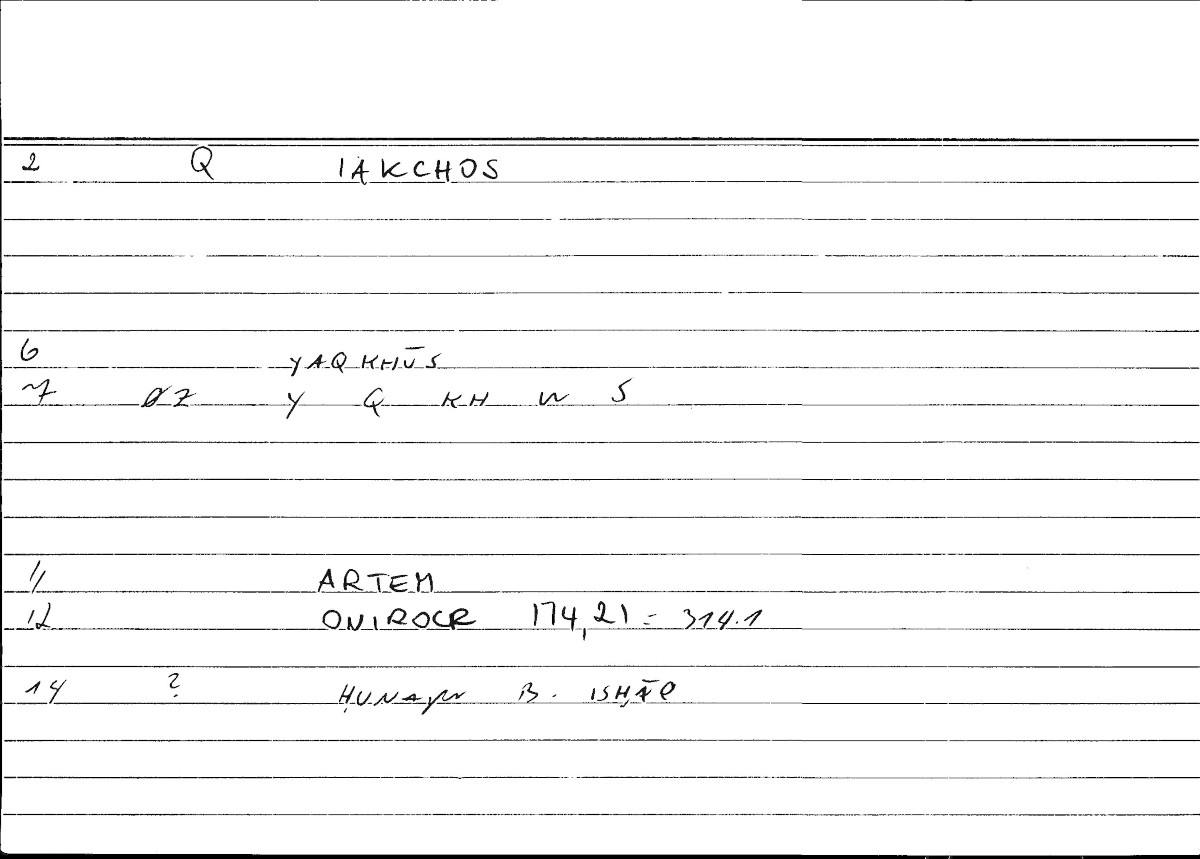 2 Q IAKCHOS
6 YAQKHŪS
7 ØZ Y Q KH W S
11 ARTEM
12 ONIROCR 174,21 = 314.1
14 ? ḤUNAYN B. ISḤĀQ